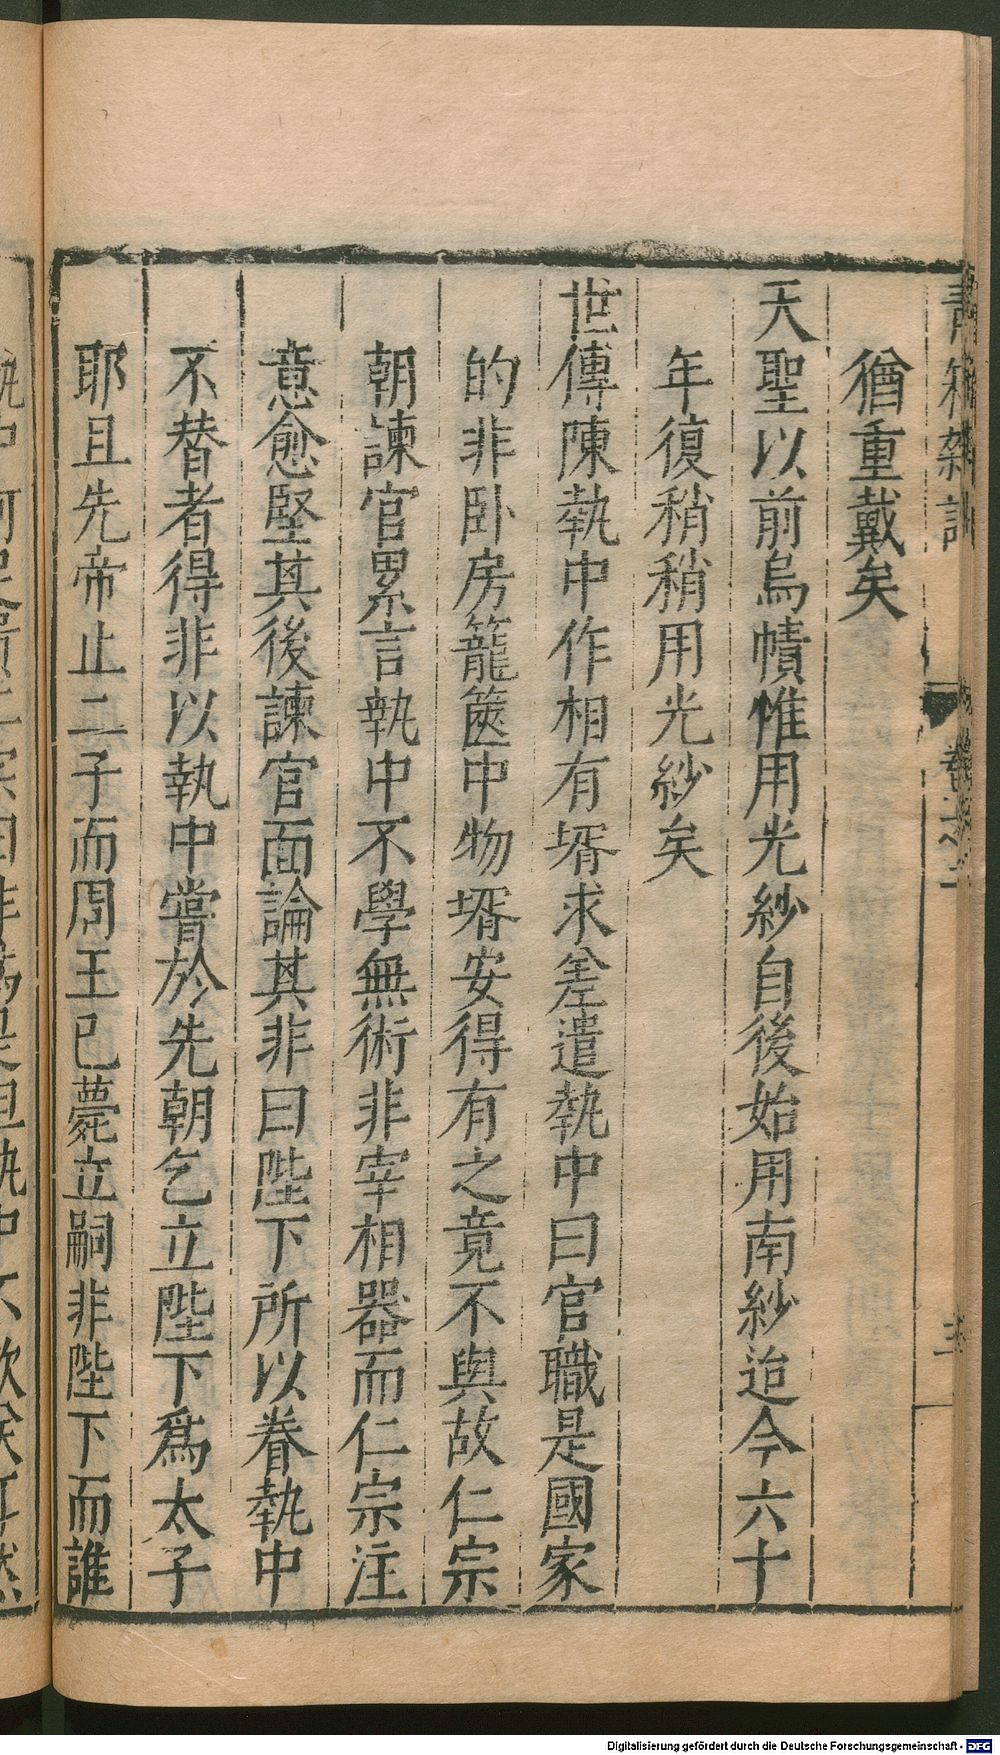 猶重戴矣
天聖以前烏幘惟用光紗自後始用南紗迨今六十
年復稍稍用光紗矣
世傳陳執中作相有壻求差遣執中曰官職是國家
的非卧房籠篋中物壻安得有之竟不與故仁宗
朝諫官累言執中不學無術非宰相器而仁宗注
意愈堅其後諫官面論其非曰陛下所以眷執中
不替者得非以執中嘗於先朝乞立陛下爲太子
耶且先帝止二子而周王已薨立嗣非陛下而誰
Digitalisierung gefördert durch die Deutsche Forschungsgemeinschaft - DFG